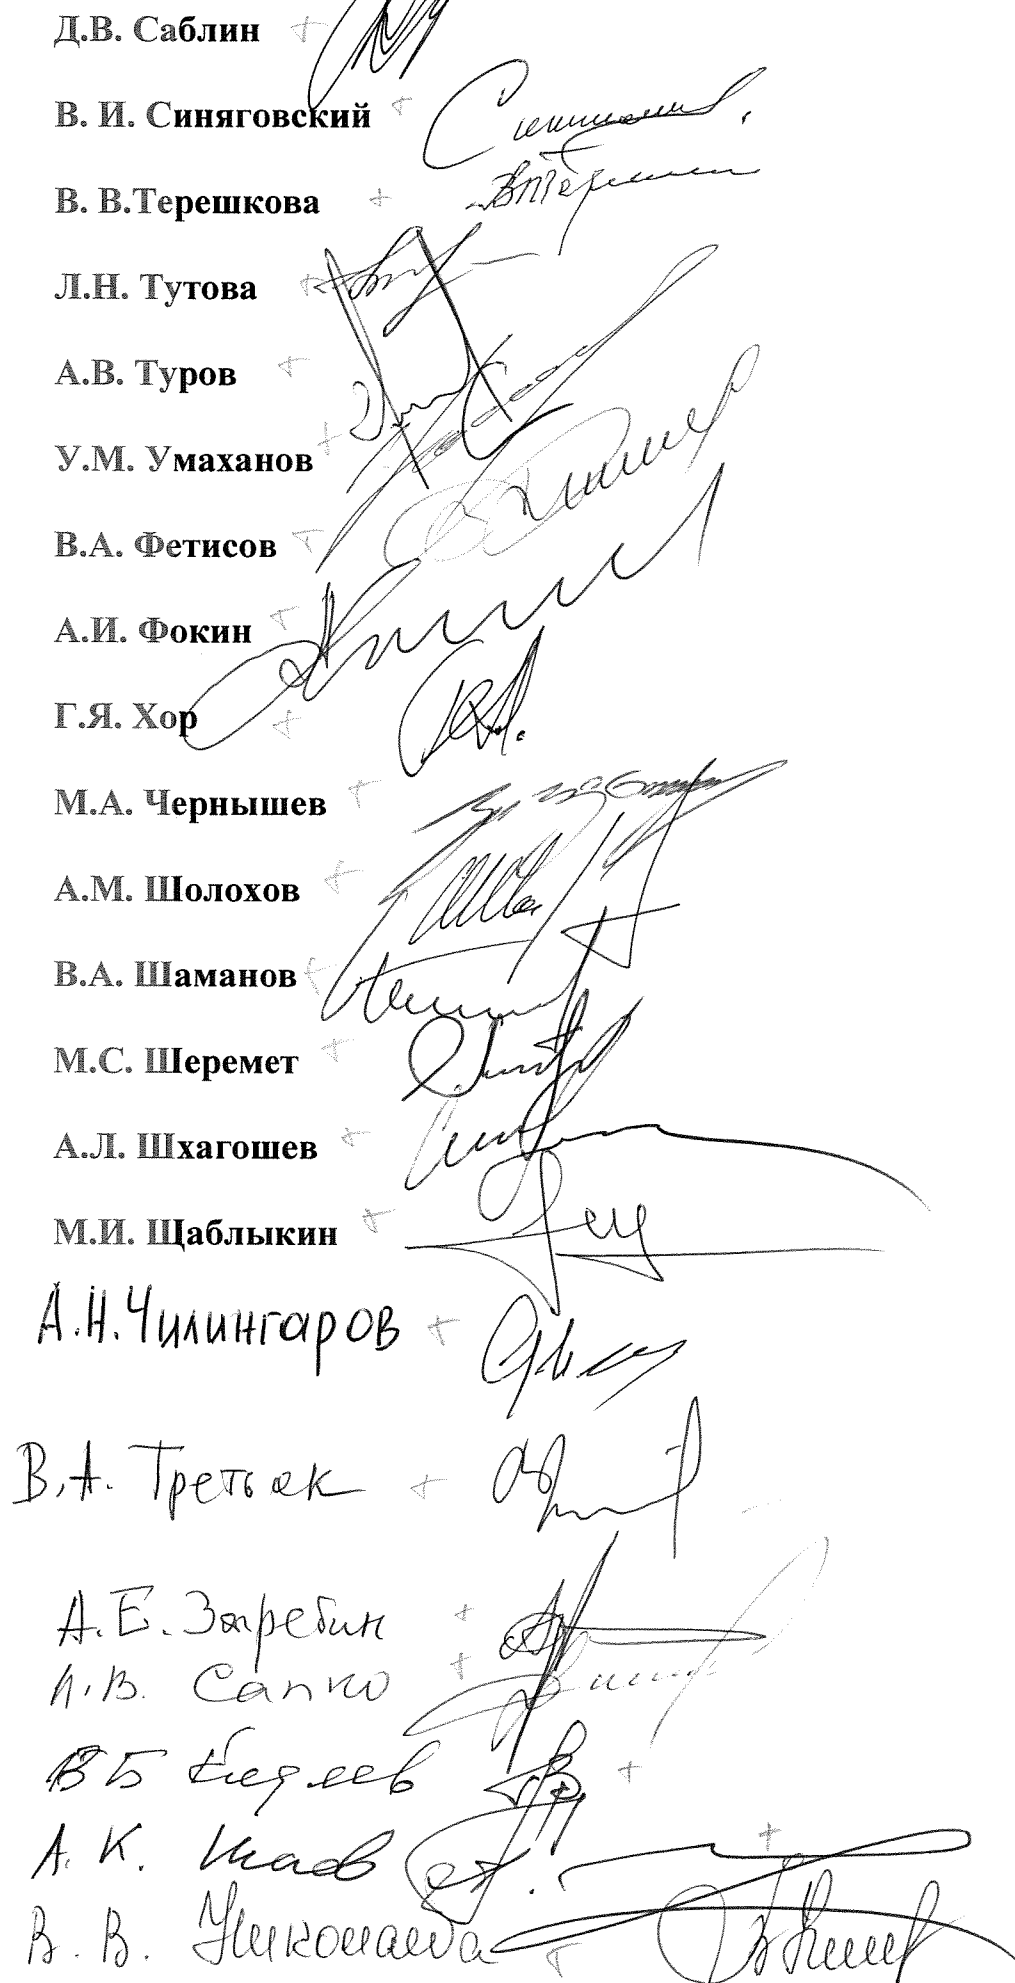 Д.В. Саблин
В. И. Синяговский
В. В.Терешкова
Л.Н. Тутова
А.В. Туров
У.М. Умаханов
В.А. Фетисов
А.И. Фокин
Г.Я. Хор
М.А. Чернышев
А.М. Шолохов
В.А. Шаманов
М.С. Шеремет
А.Л. Шхагошев
М.И. Щаблыкин
А.Н. Чилингаров
В.А. Третьяк
А.Е. Загребин
И.В. Сапко
В Б Кидяев
А. К. Исаев
В. В.